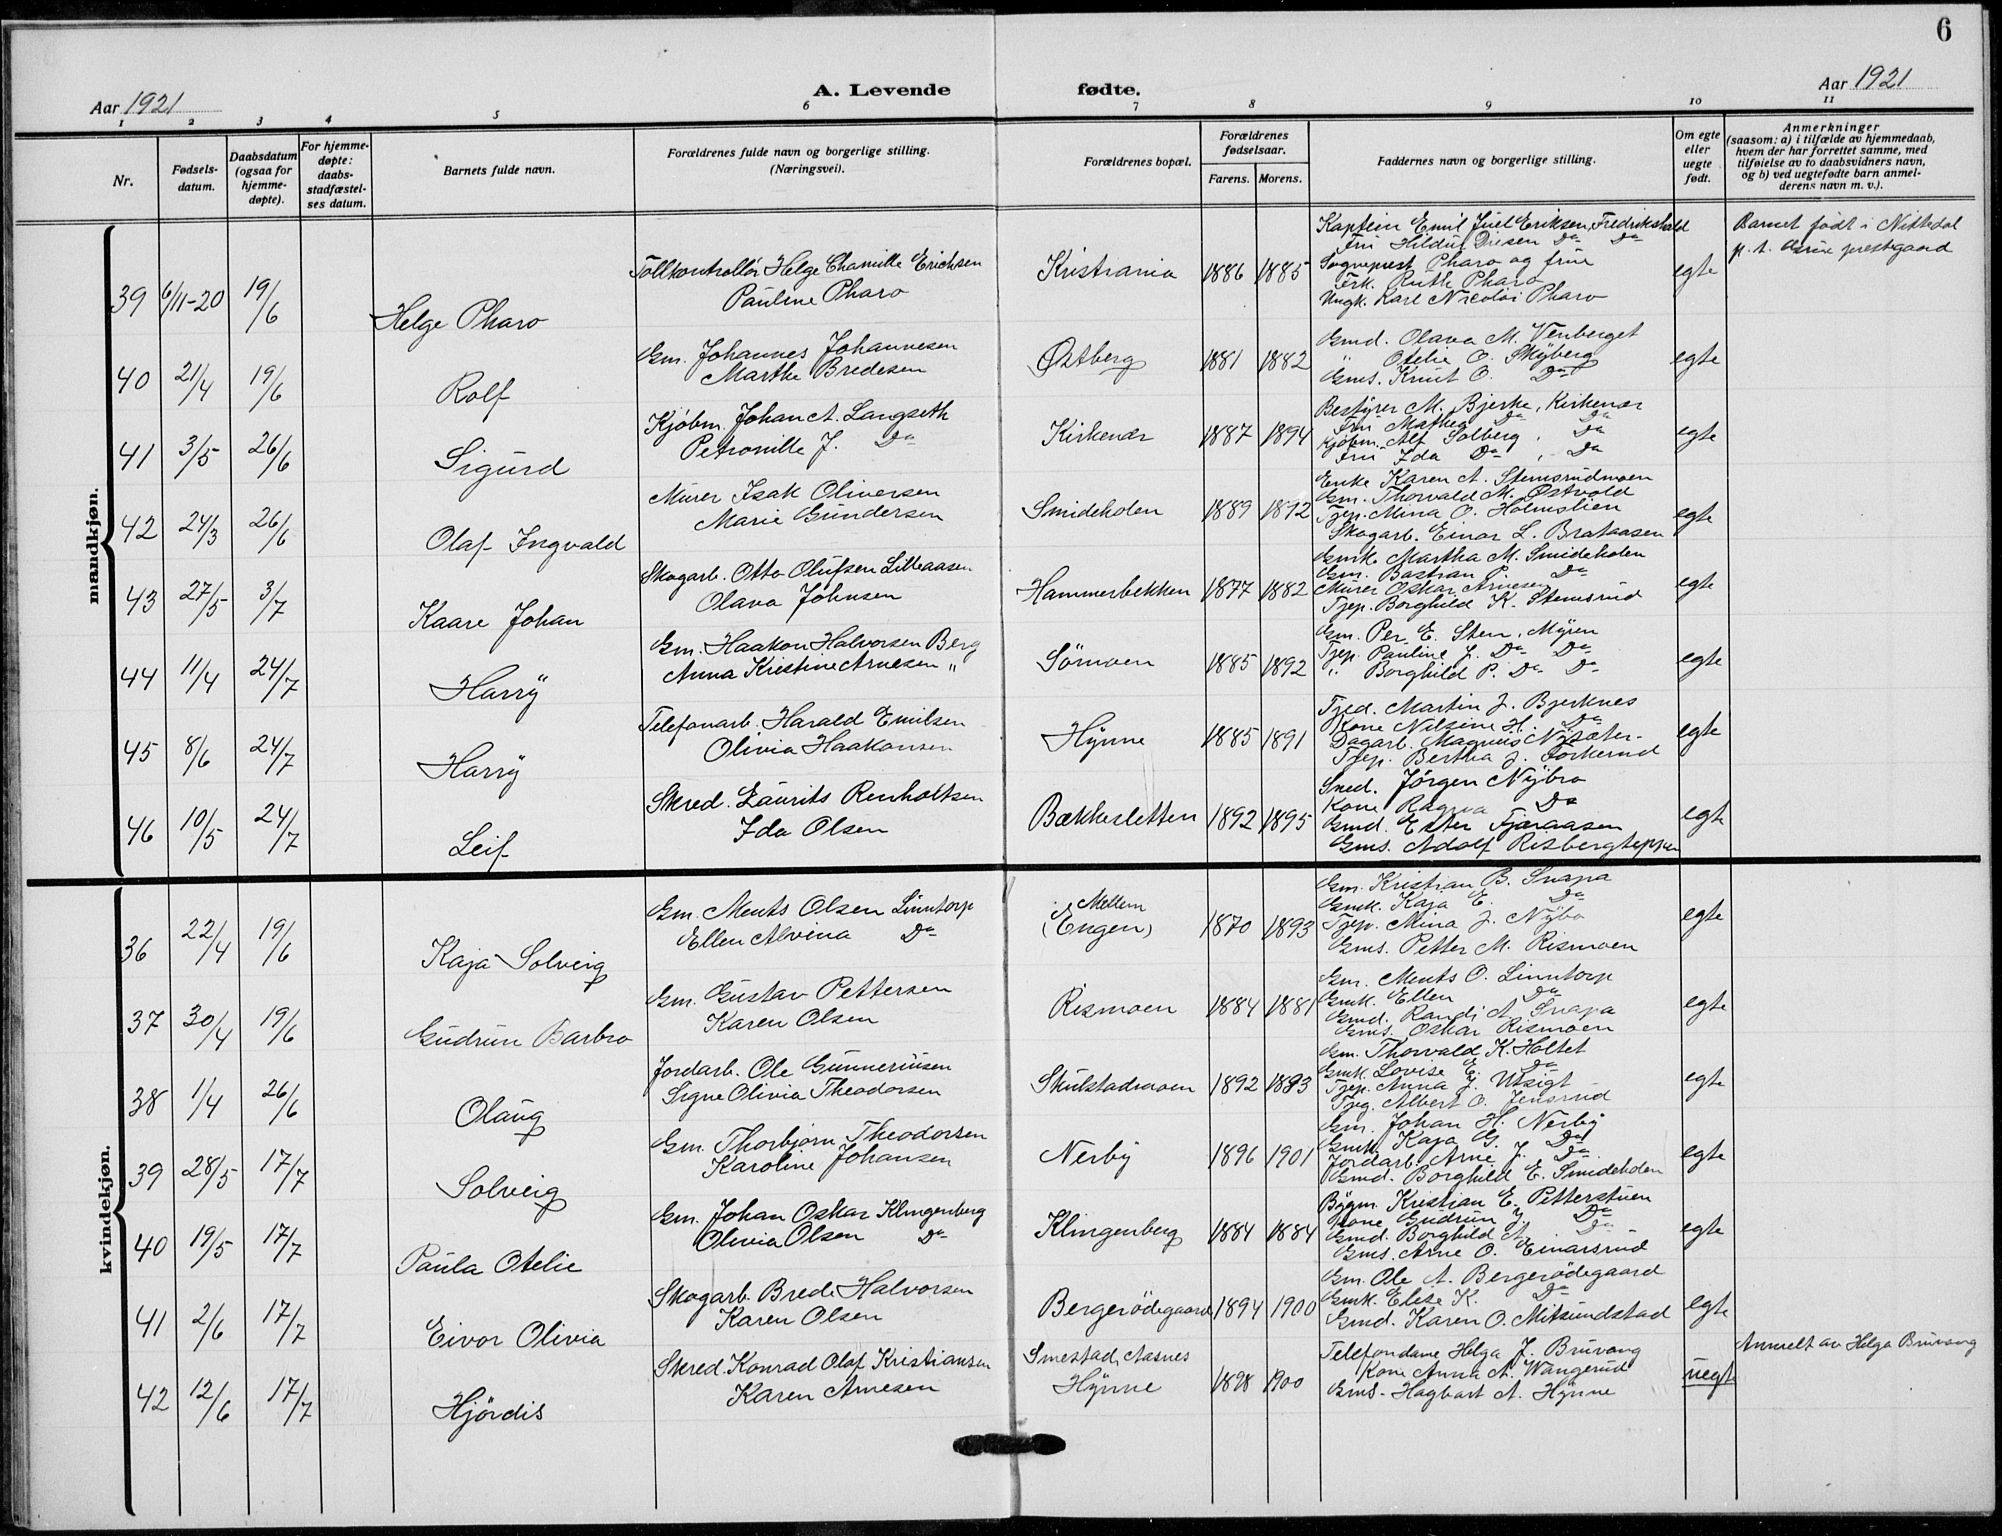 6
Aar 1921
A. Levende fødte.
Aar 1921
1 2 3 4 5 6 7 8 9 10 11
Nr.
Fødsels-
datum.
Daabsdatum
(ogsaa for
hjemme-
døpte).
For hjemme-
døpte:
daabs-
stadfæstel-
ses datum.
Barnets fulde navn.
Forældrenes fulde navn og borgerlige stilling.
(Næringsvei).
Forældrenes bopæl.
Forældrenes
fødselsaar.
Farens. Morens.
Faddernes navn og borgerlige stilling.
Om egte
eller
uegte
født.
Anmerkninger
(saasom: a) i tilfælde av hjemmedaab,
hvem der har forrettet samme, med
tilføielse av to daabsvidners navn,
og b) ved uegtefødte barn anmel-
derens navn m. v.).
mandkjøn.
39 6/11-20 19/6 Helge Pharo
Tollkontrollør Helge Chamille Erichsen
Pauline Pharo
Kristiania 1886 1885
Kaptein Emil Juel Eriksen, Fredrikshald
Fru Hildur Da Da
Sogneprest Pharo og frue
Frk. Ruth Pharo
Ungk. Karl Nicolai Pharo
egte
Barnet født i Nittedal
p. t. Grue prestegaard
40 21/4 19/6 Rolf
Gm. Johannes Johannesen
Marthe Bredesen
Østberg 1881 1882
Gmd. Olava M. Venberget
" Otelie O. Skyberg
Gms. Knut O. Da
egte
41 3/5 26/6 Sigurd
Kjøbm. Johan A. Langseth
Petronille J. Da
Kirkenær 1887 1894
Bestyrer M. Bjerke, Kirkenær
Fru Mathea Da Da
Kjøbm. Alf Solberg, Da
Fru Ida Da, Da
egte
42 24/3 26/6 Olaf Ingvald
Murer Isak Oliversen
Marie Gundersen
Smideholen 1889 1892
Enke Karen A. Stemsrudmoen
Gm. Thorvald M. Østvold
Tjep. Mina O. Holmslien
Skogarb. Einar L. Brataasen
egte
43 27/5 3/7 Kaare Johan
Skogarb. Otto Olufsen Lilleaasen
Olava Johnsen
Hammerbekken 1877 1882
Gmk. Martha M. Smideholen
Gm. Bastian P. Da
Murer Oskar Arnesen
Tjep. Borghild K. Stemsrud
egte
44 11/4 24/7 Harry
Gm. Haakon Halvorsen Berg
Anna Kristine Arnesen "
Sörmoen 1885 1892
Gm. Per E. Sten, Myren
Tjep. Pauline J. Da Da
" Borghild P. Da Da
egte
45 8/6 24/7 Harry
Telefonarb. Harald Emilsen
Olivia Haakonsen
Hynne 1885 1891
Tjed. Martin J. Bjerknes
Kone Nilsine H. Da
Dagarb. Magnus Nysæter
Tjep. Bertha J. Torkerud
egte
46 10/5 24/7 Leif
Skred. Laurits Renholtsen
Ida Olsen
Bækkesletten 1892 1895
Sned. Jörgen Nybro
Kone Ragna Da
Gmd. Ester Fjæraasen
Gms. Adolf Risbergteppen
egte
kvindekjøn.
36 22/4 19/6 Kaja Solveig
Gm. Ments Olsen Linntorp
Ellen Alvina Da
Mellem
(Engen) 1870 1893
Gm. Kristian B. Snapa
Gmk. Kaja E. Da
Tjep. Mina J. Nybo
Gms. Petter M. Rismoen
egte
37 30/4 19/6 Gudrun Barbro
Gm. Gustav Pettersen
Karen Olsen
Rismoen 1884 1881
Gm. Ments O. Linntorp
Gmk. Ellen Da
Gmd. Randi A. Snapa
Gms. Oskar Rismoen
egte
38 1/4 26/6 Olaug
Jordarb. Ole Gunneriusen
Signe Olivia Theodorsen
Skulstadmoen 1892 1893
Gm. Thorvald K. Holtet
Gmk. Lovise E. Da
Tjep. Anna J. Utsigt
Tjeg. Albert O. Jensrud
egte
39 28/5 17/7 Solveig
Gm. Thorbjørn Theodorsen
Karoline Johansen
Nerby 1896 1901
Gm. Johan H. Nerby
Gmk. Kaja G. Da
Jordarb. Arne J. Da
Gmd. Borghild E. Smideholen
egte
40 19/5 17/7 Paula Otelie
Gm. Johan Oskar Klingenberg
Olivia Olsen Da
Klingenberg 1884 1884
Bygm. Kristian E. Petterstuen
Kone Gudrun J. Da
Gmd. Borghild A. Da
Gms. Arne O. Einarsrud
egte
41 2/6 17/7 Eivor Olivia
Skogarb. Brede Halvorsen
Karen Olsen
Bergerödegaard 1894 1900
Gm. Ole A. Bergerödegaard
Gmk. Elise K. Da
Gmd. Karen O. Mitsundstad
egte
42 12/6 17/7 Hjördis
Skred. Konrad Olaf Kristiansen
Karen Arnesen
Smestad, Aasnes
Hynne 1898 1900
Telefondame Helga J. Bruvang
Kone Anna A. Wangerud
Gms. Hagbart A. Hynne
uegte
Anmelt av Helga Bruvang